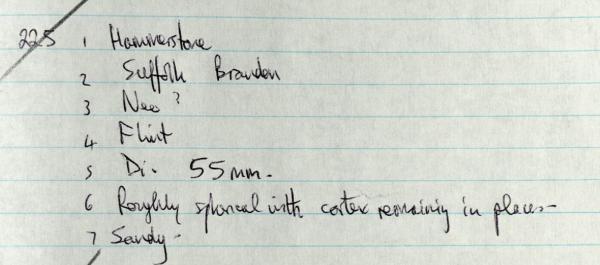 225 1 Hammerstone
2 Suffolk Brandon
3 Neo ?
4 Flint
5 Di. 55mm.
6 Roughly spherical with cortex remaining in places.
7 Sandy.